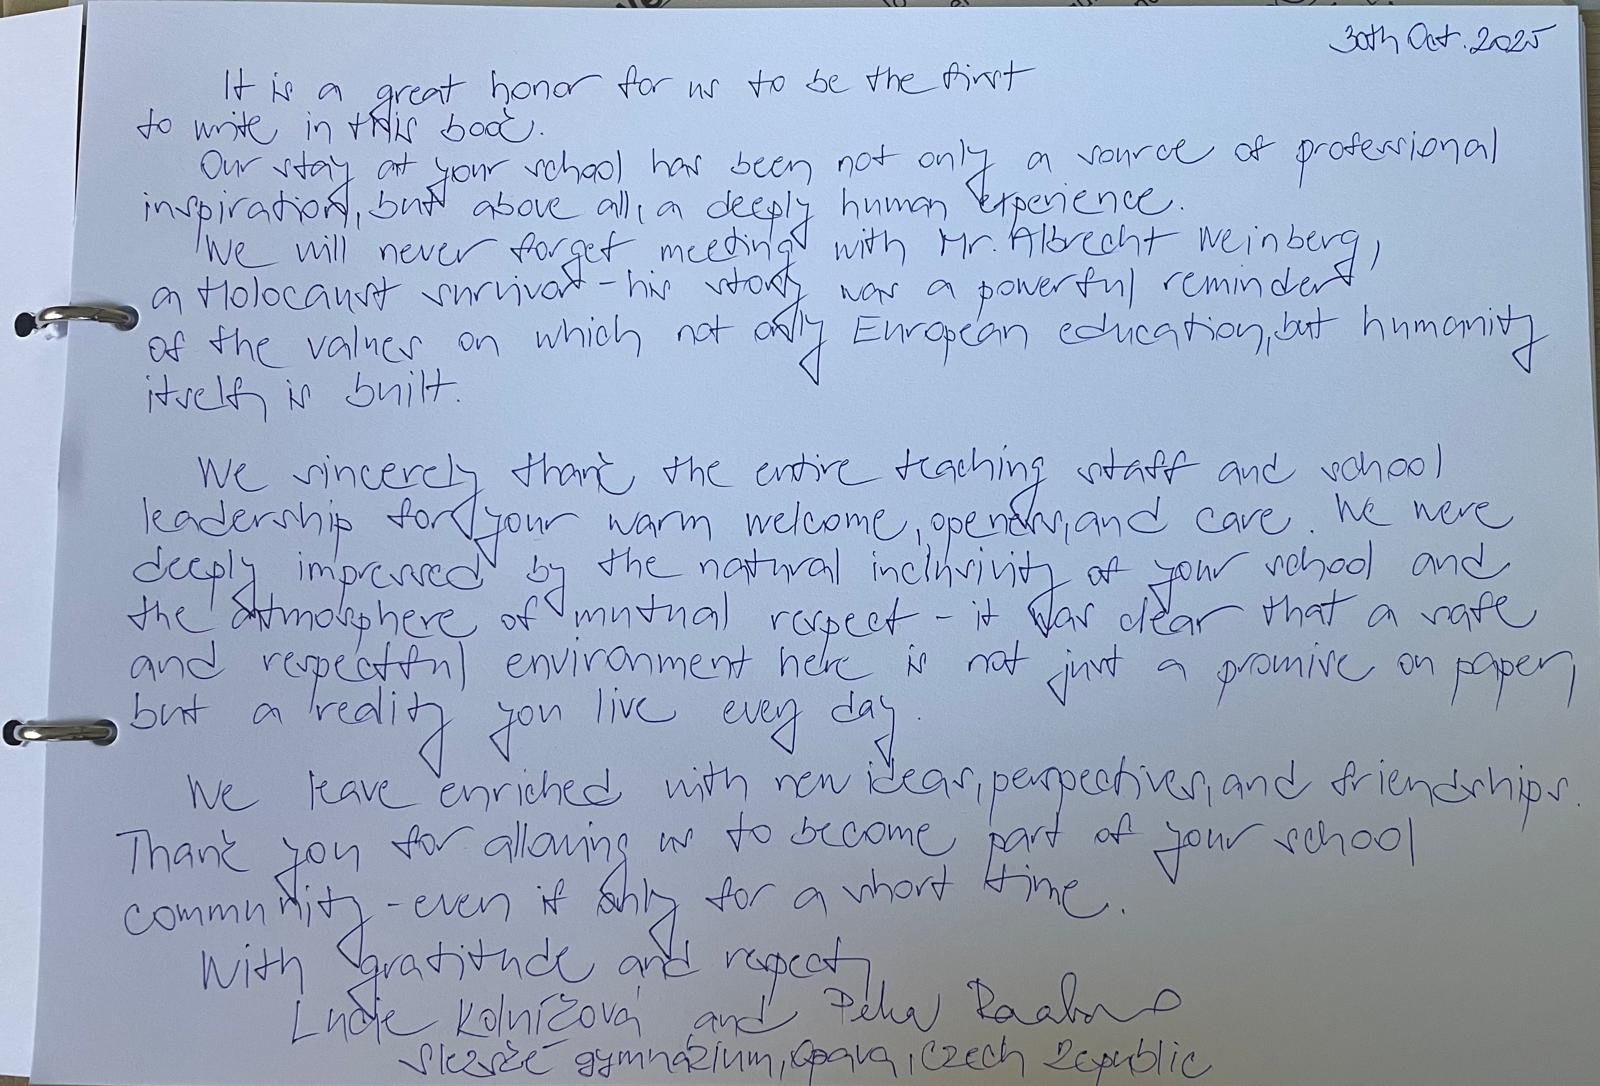 30th Oct. 2025
It is a great honor for us to be the first
to write in this book.
Our stay at your school has been not only a source of professional
inspiration, but above all, a deeply human experience.
We will never forget meeting with Mr. Albrecht Weinberg,
a Holocaust survivor - his story was a powerful reminder
of the values on which not only European education, but humanity
itself is built.
We sincerely thank the entire teaching staff and school
leadership for your warm welcome, openness, and care. We were
deeply impressed by the natural inclusivity of your school and
the atmosphere of mutual respect - it was clear that a safe
and respectful environment here is not just a promise on paper,
but a reality you live every day.
We leave enriched with new ideas, perspectives, and friendships.
Thank you for allowing us to become part of your school
community - even if only for a short time.
With gratitude and respect,
Lucie Kolníčová and
Slezské gymnázium, Opava, Czech Republic